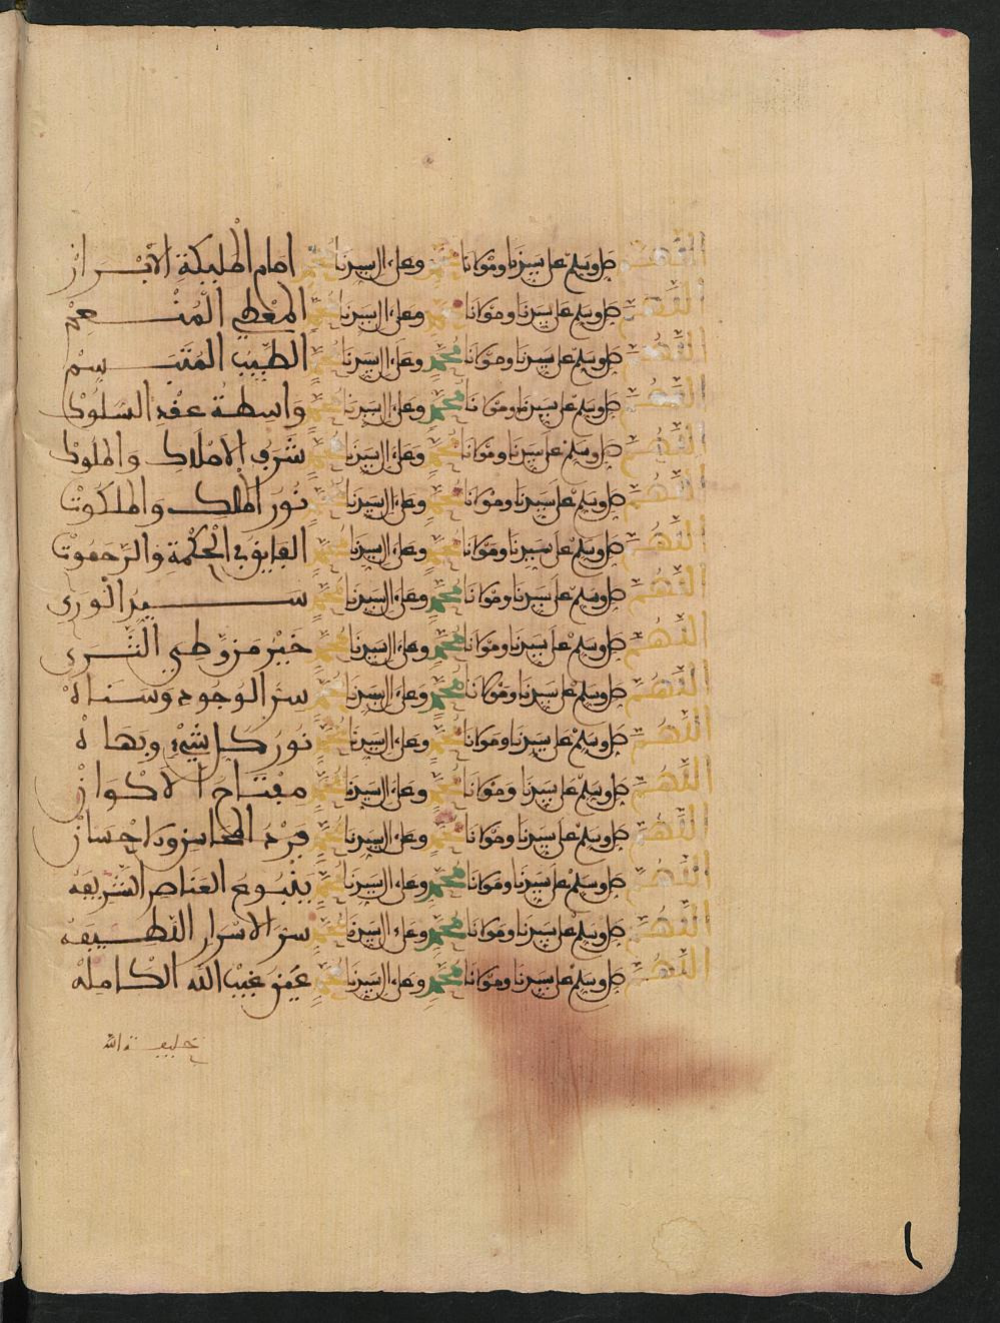 اللهم صل وسلم على سيدنا ومولانا محمد وعلى ءال سيدنا محمد امام المليكة الأبرار
اللهم صل وسلم على سيدنا ومولانا محمد وعلى ءال سيدنا محمد المعطي المنعم
اللهم صل وسلم على سيدنا ومولانا محمد وعلى ءال سيدنا محمد الطيب المتبسم
اللهم صل وسلم على سيدنا ومولانا محمد وعلى ءال سيدنا محمد واسطة عقد السلوك
اللهم صل وسلم على سيدنا ومولانا محمد وعلى ءال سيدنا محمد شرف الاملاك والملوك
اللهم صل وسلم على سيدنا ومولانا محمد وعلى ءال سيدنا محمد نور الملك والملكوت
اللهم صل وسلم على سيدنا ومولانا محمد وعلى ءال سيدنا محمد الفايق في الحكمة والرحموت
اللهم صل وسلم على سيدنا ومولانا محمد وعلى ءال سيدنا محمد سيد الورى
اللهم صل وسلم على سيدنا ومولانا محمد وعلى ءال سيدنا محمد خير من وطئ الثرى
اللهم صل وسلم على سيدنا ومولانا محمد وعلى ءال سيدنا محمد سر الوجود وسناه
اللهم صل وسلم على سيدنا ومولانا محمد وعلى ءال سيدنا محمد نور كل شيء وبهاه
اللهم صل وسلم على سيدنا ومولانا محمد وعلى ءال سيدنا محمد مفتاح الاكوان
اللهم صل وسلم على سيدنا ومولانا محمد وعلى ءال سيدنا محمد فرد المحاسن والاحسان
اللهم صل وسلم على سيدنا ومولانا محمد وعلى ءال سيدنا محمد ينبوع العناصر الشريفه
اللهم صل وسلم على سيدنا ومولانا محمد وعلى ءال سيدنا محمد سر الاسرار اللطيفه
اللهم صل وسلم على سيدنا ومولانا محمد وعلى ءال سيدنا محمد عين غيب الله الكامله
خليفة الله